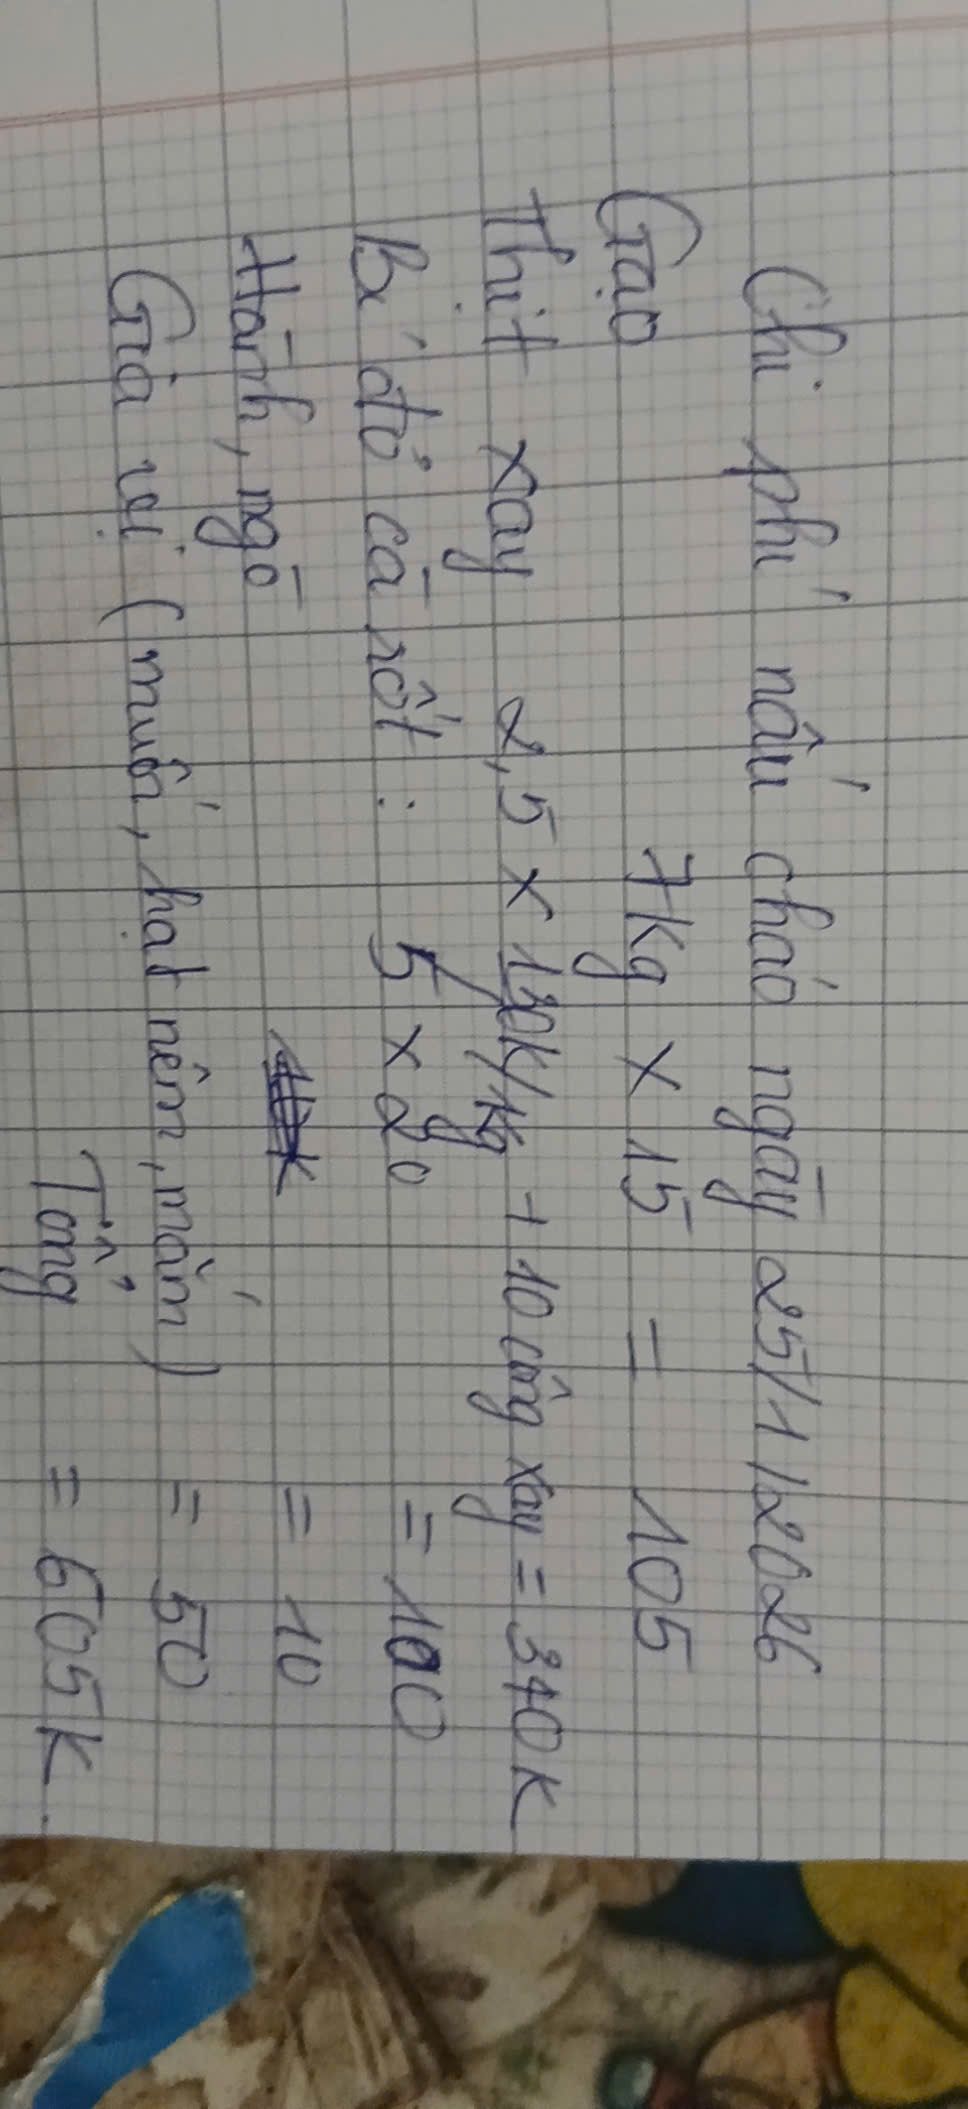 Chi phí nấu cháo ngày 25/1/2026
Gạo 7kg x 15 = 105
Thịt xay 2,5 x 130k/1kg + 10 công xay = 340k
Bí đỏ cà rốt : 5 x 20 = 100
Hành, ngò = 10
Gia vị (muối, hạt nêm, mắm) = 50
Tổng = 605k.